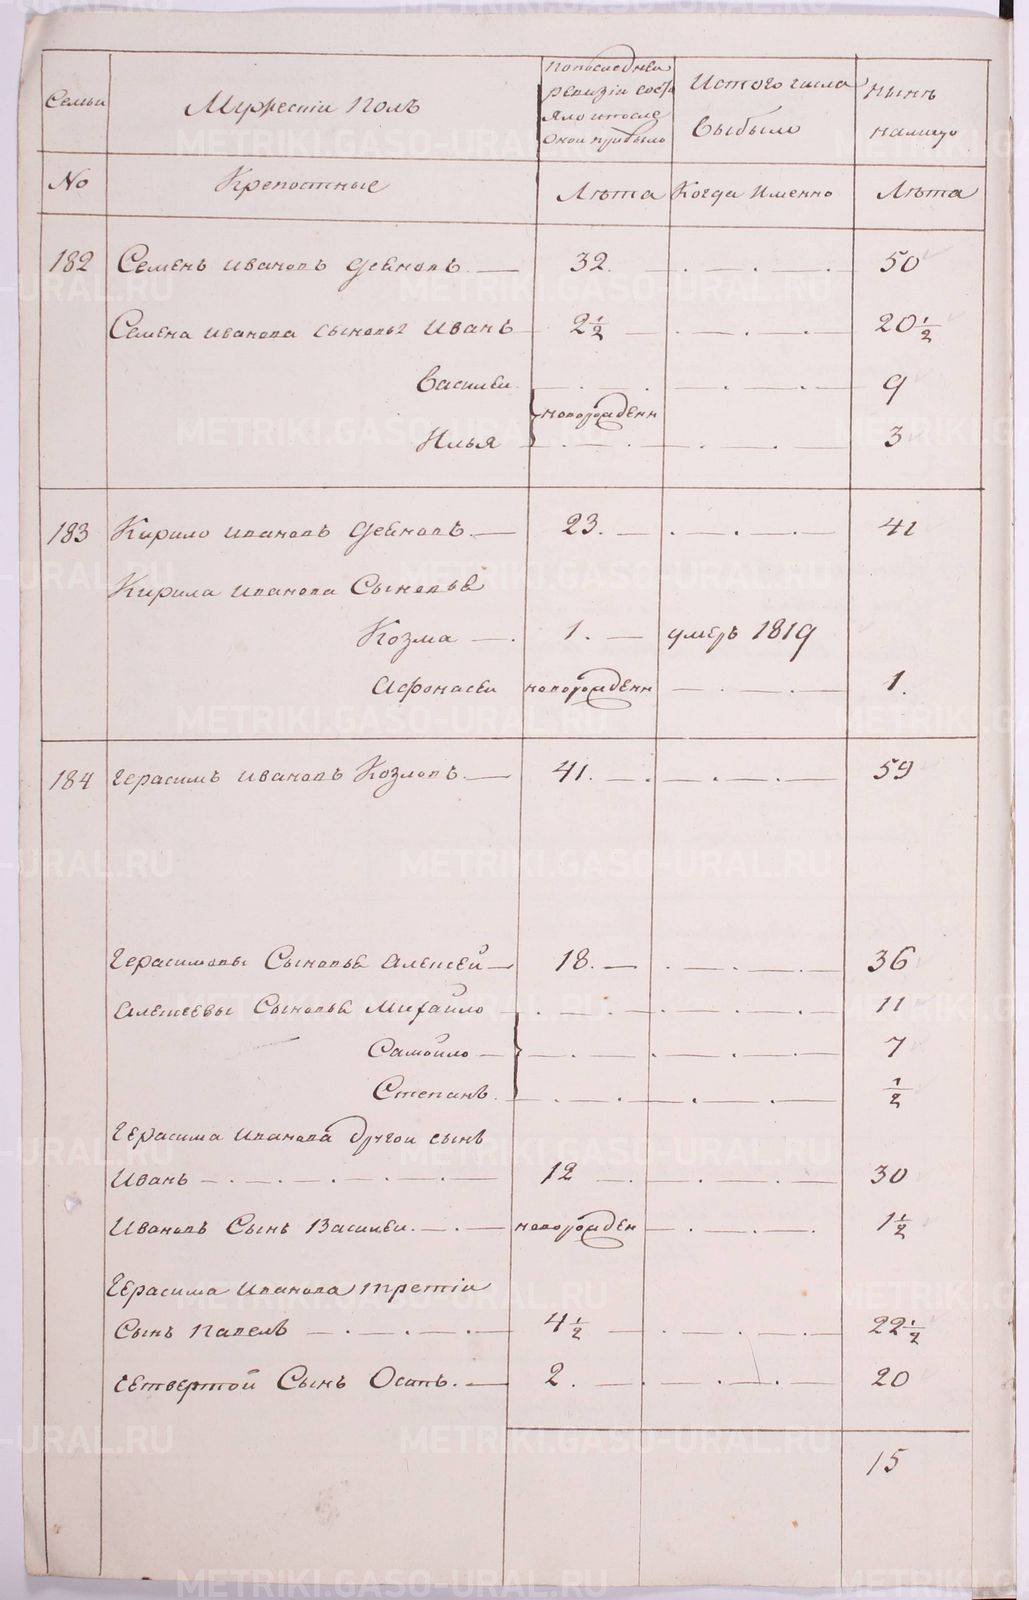 Семьи
Мужескій полъ
по последней
ревизіи состо
яло и после
оной прибыло
Ис того числа
выбыло
нынѣ
налицо
No
Крепостные
Лѣта
Когда Именно
Лѣта
182 Семенъ Ивановъ 32. 50
Семена Иванова сыновья Иванъ 2 1/2 20 1/2
Василеи 9
новорожденн
Илья 3
183 Кирило Ивановъ 23. 41
Кирила Иванова Сыновья
Козма 1. умеръ 1819
Афонасеи новорожденн 1.
184 Герасимъ Ивановъ Козловъ 41. 59
Герасимовы Сыновья Алексѣй 18. 36
Алексеевы Сыновья Михайло 11
Самойло 7
Степанъ 1/2
Герасима Иванова другои сынъ
Иванъ 12 30
Ивановъ Сынъ Василеи новорожден 1 1/2
Герасима Иванова третіи
Сынъ Павелъ 4 1/2 22 1/2
четвертой Сынъ Осипъ. 2. 20
15
METRIKI.GASO-URAL.RU